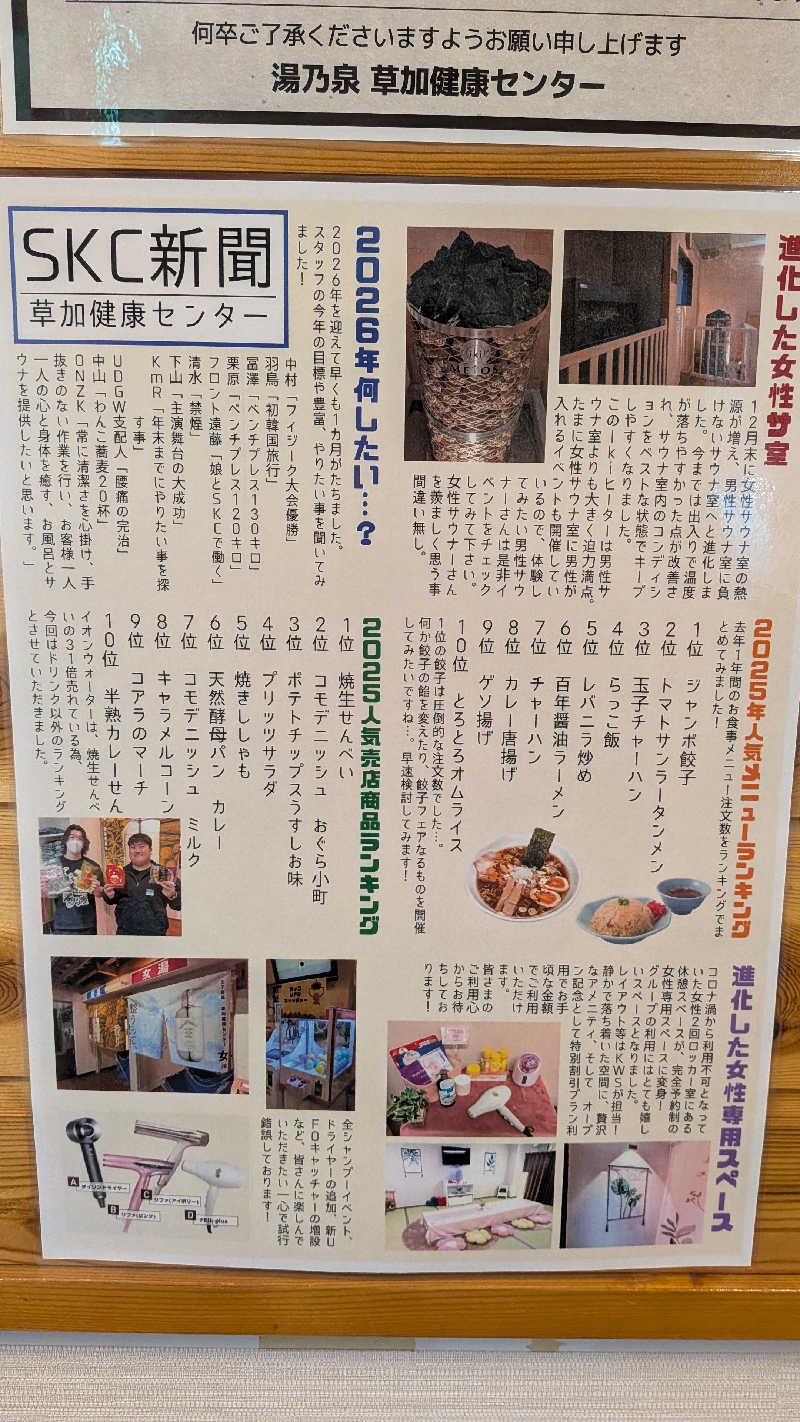 何卒ご了承くださいますようお願い申し上げます
湯乃泉 草加健康センター
SKC新聞
草加健康センター
進化した女性サ室
12月末に女性サウナ室の熱
源が増え、男性サウナ室に負
けないサウナ室へと進化しま
した。今までは出入りで温度
が落ちやすかった点が改善さ
れ、サウナ室内のコンディシ
ョンをベストな状態でキープ
しやすくなりました。
このikiヒーターは男性サ
ウナ室よりも大きく迫力満点。
たまに女性サウナ室に男性が
入れるイベントも開催してい
るので、体験し
てみたい男性サウ
ナーさんは是非イ
ベントをチェック
してみて下さい。
女性サウナーさん
を羨ましく思う事
間違い無し。
iki
METOS
2026年何したい…?
2026年を迎えて早くも1カ月がたちました。
スタッフの今年の目標や豊富、やりたい事を聞いてみ
ました!
中村「フィジーク大会優勝」
羽鳥「初韓国旅行」
冨澤「ベンチプレス130キロ」
栗原「ベンチプレス120キロ」
フロント遠藤「娘とSKCで働く」
清水「禁煙」
下山「主演舞台の大成功」
KmR「年末までにやりたい事を探
す事」
UDGW支配人「腰痛の完治」
中山「わんこ蕎麦20杯」
ONZK「常に清潔さを心掛け、手
抜きのない作業を行い、お客様一人
一人の心と身体を癒す、お風呂とサ
ウナを提供したいと思います。」
2025年人気メニューランキング
去年1年間のお食事メニュー注文数をランキングでま
とめてみました!
1位 ジャンボ餃子
2位 トマトサンラータンメン
3位 玉子チャーハン
4位 らっこ飯
5位 レバニラ炒め
6位 百年醤油ラーメン
7位 チャーハン
8位 カレー唐揚げ
9位 ゲソ揚げ
10位 とろとろオムライス
1位の餃子は圧倒的な注文数でした…。
何か餃子の餡を変えたり、餃子フェアなるものを開催
してみたいですね…。早速検討してみます!
2025人気売店商品ランキング
1位 焼生せんべい
2位 コモデニッシュ おぐら小町
3位 ポテトチップスうすしお味
4位 プリッツサラダ
5位 焼きししゃも
6位 天然酵母パン カレー
7位 コモデニッシュ ミルク
8位 キャラメルコーン
9位 コアラのマーチ
10位 半熟カレーせん
イオンウォーターは、焼生せんべ
いの31倍売れている為、
今回はドリンク以外のランキング
とさせていただきました。
進化した女性専用スペース
コロナ渦から利用不可となって
いた女性2回ロッカー室にある
休憩スペースが、完全予約制の
女性専用スペースに変身!
グループの利用にはとても嬉し
いスペースとなりました。
レイアウト等はKWSが担当!
静かで落ち着いた空間に、贅沢
なアメニティ、そして オープ
ン記念として特別割引プラン利
用でお手
頃な金額
でご利用
いただけ
ます。
皆さまの
ご利用心
からお待
ちしてお
ります!
女湯
全シャンプーイベント、
ドライヤーの追加、新U
FOキャッチャーの増設
など、皆さんに楽しんで
いただきたい一心で試行
錯誤しております!
A ダイソンドライヤー
B リファ(ピンク)
C リファ(アイボリー)
D